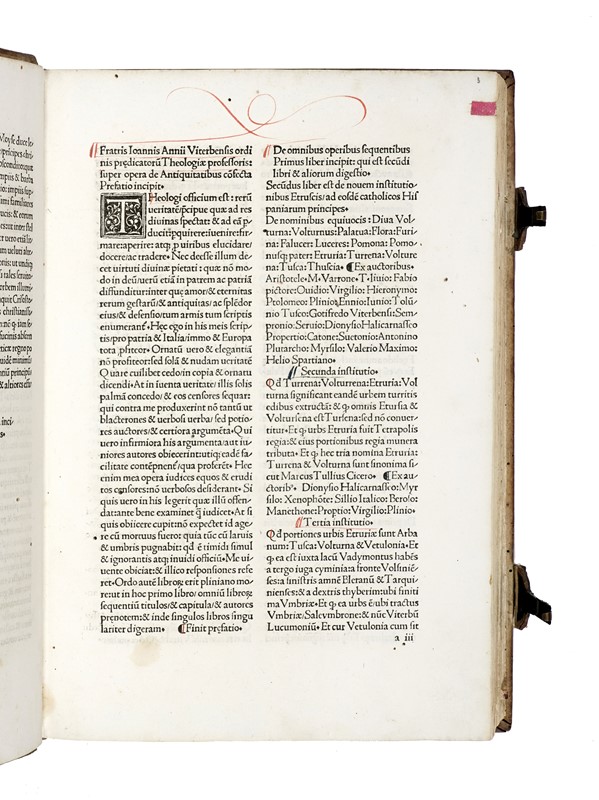 Fratris Ioannis Annii Viterbensis ordi
nis prędicatorū Theologiæ professoris:
super opera de Antiquitatibus cōfecta
Prefatio incipit•
THeologi officium est: rerū
ueritatē/p̄cipue quæ ad res
diuinas spectat: & ad eā ꝑ
ducit/ꝑquirere: iuenire: fir-
mare: aperire: atqꝫ ꝑ uiribus elucidare/
docere/ac tradere• Nec deesse illum de-
cet uirtuti diuinæ pietati: quæ nō mo-
do in deū/ueru etiā in patrem ac patriā
diffunditur: inter quæ amor/& eternitas
rerum gestarū & antiquitas/ac splēdor
eius/& defensio/tum armis tum scriptis
enumerant̄• Hęc ego in his meis scrip-
tis/pro patria & Italia/immo & Europa
tota ꝓfiteor• Ornatū uero & elegantiā
nō profiteor: sed solā & nudam ueritatē
Quare cuilibet cedo/in copia & ornatu
dicendi• At in iuenta ueritate/illis solis
palmā concedo/& eos censores sequar:
qui contra me produxerint nō tantū ut
blacterones & uerbosi uerba/sed potio-
res auctores/& certiora argumēta• Qui
uero infirmiora his argumenta/aut iu-
niores autores obiecerint: utiqꝫ eadē fa-
cilitate contēpnent̄/qua proferēt• Hec
enim mea opera iudices equos & erudi
tos censores: nō uerbosos desiderant• Si
quis uero in his legerit quæ illū offen-
dat: ante bene examinet q̄ iudicet• At si
quis obiicere cupit: nō expectet id age-
re cū mortuus fuero: quia tūc cū laruis
& umbris pugnabit: qd̄ ē timidi simul
& ignorantis atqꝫ inuidi officiū• Me ui-
uente obiciat: & illico responsiones refe
ret• Ordo autē libroꝝ erit pliniano mo-
re: ut in hoc primo libro/omniū libroꝝ
sequentiū titulos/& capitula/& autores
prenotem: & inde singulos libros singu
lariter digeram• Finit pręfatio•
De omnibus operibus sequentibus
Primus liber incipit: qui est secūdi
libri & aliorum digestio•
Secūdus liber est de nouem institutio-
nibus Etruscis/ad eosdē catholicos His
paniarum principes•
De nominibus equiuocis: Diua Vol-
turna: Volturnus: Palatua: Flora: Furi-
na: Falucer: Luceres: Pomona: Pomo-
nusqꝫ pater: Etruria: Turrena: Volturre
na: Tusca: Thuscia• Ex auctoribus•
Aristotele• M• Varrone• T• liuio: Fabio
pictore: Ouidio: Virgilio: Hieronymo:
Ptolomeo: Plinio: Ennio: Iunio: Tolū-
nio Tusco: Gotifredo Viterbensi: Sem-
pronio: Seruio: Dionysio Halicarnaseo
Propertio: Catone: Suetonio: Antonino
Plutarcho: Myrsilo: Valerio Maximo:
Helio Spartiano•
Secunda institutio•
Qd Turrena: Volturrena: Etruria: Vol
turna significant eandē urbem turritis
edibus extructā: & qꝫ omnis Etrusia &
Volturrena est Turrena: sed nō conuer-
titur• Et qꝫ urbs Etruria fuit Tetrapolis
regia: & eius portionibus regia munera
tributa• Et qꝫ hec tria nomina Etruria:
Turrena & Volturna sunt sinonima si-
cut Marcus Tullius Cicero• Ex au-
ctorib⁹• Dionysio Halicarnaseo: Myr
silo: Xenophōte: Sillio Italico: Beroso:
Manethone: Proptio: Virgilio: Plinio•
Tertia institutio•
Qd portiones urbis Etruriæ sunt Arba
num: Tusca: Volturna & Vetulonia• Et
qꝫ ea est iuxta lacū Vadymontus habēs
a tergo iuga cyminia: a fronte Volsiniē-
ses: a sinistris amnē Bleranū & Tarqui-
nienses: & a dextris thyberim: ubi finiti
ma Vmbriæ• Et qꝫ ea urbs ē/ubi tractus
Vmbriæ/Saleumbrone: & nūc Viterbū
Lucumoniū• Et cur Vetulonia cum sit
a iii